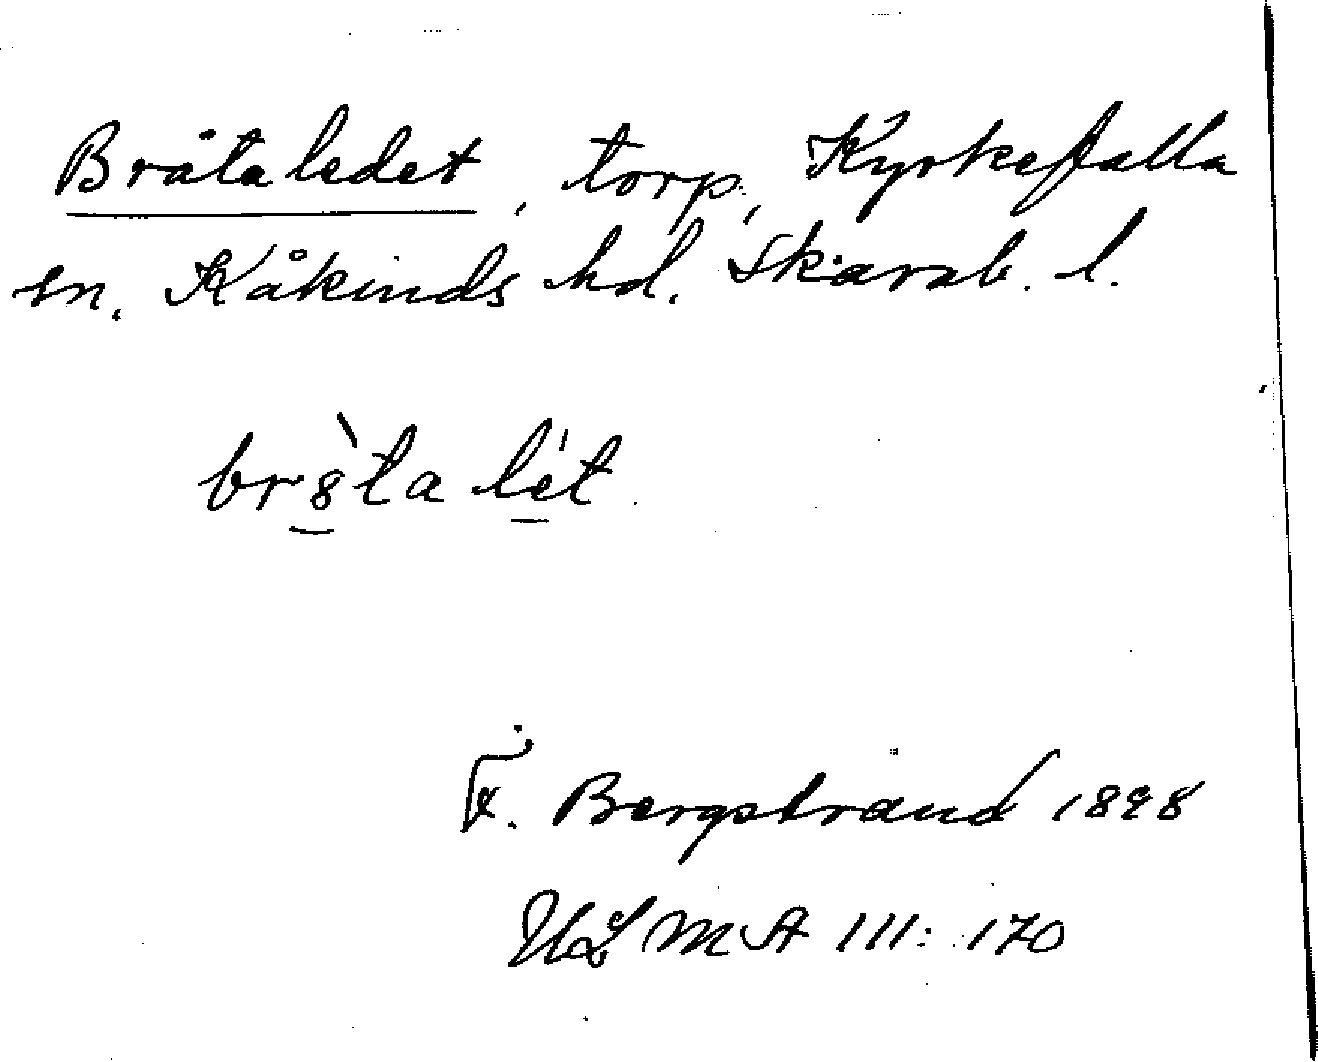 Bråtaledet, torp, Kyrkefalla
sn. Kåkinds hd. Skarab. l.
br8̀ta lét.
F. Bergstrand 1898
ULMA 111: 170